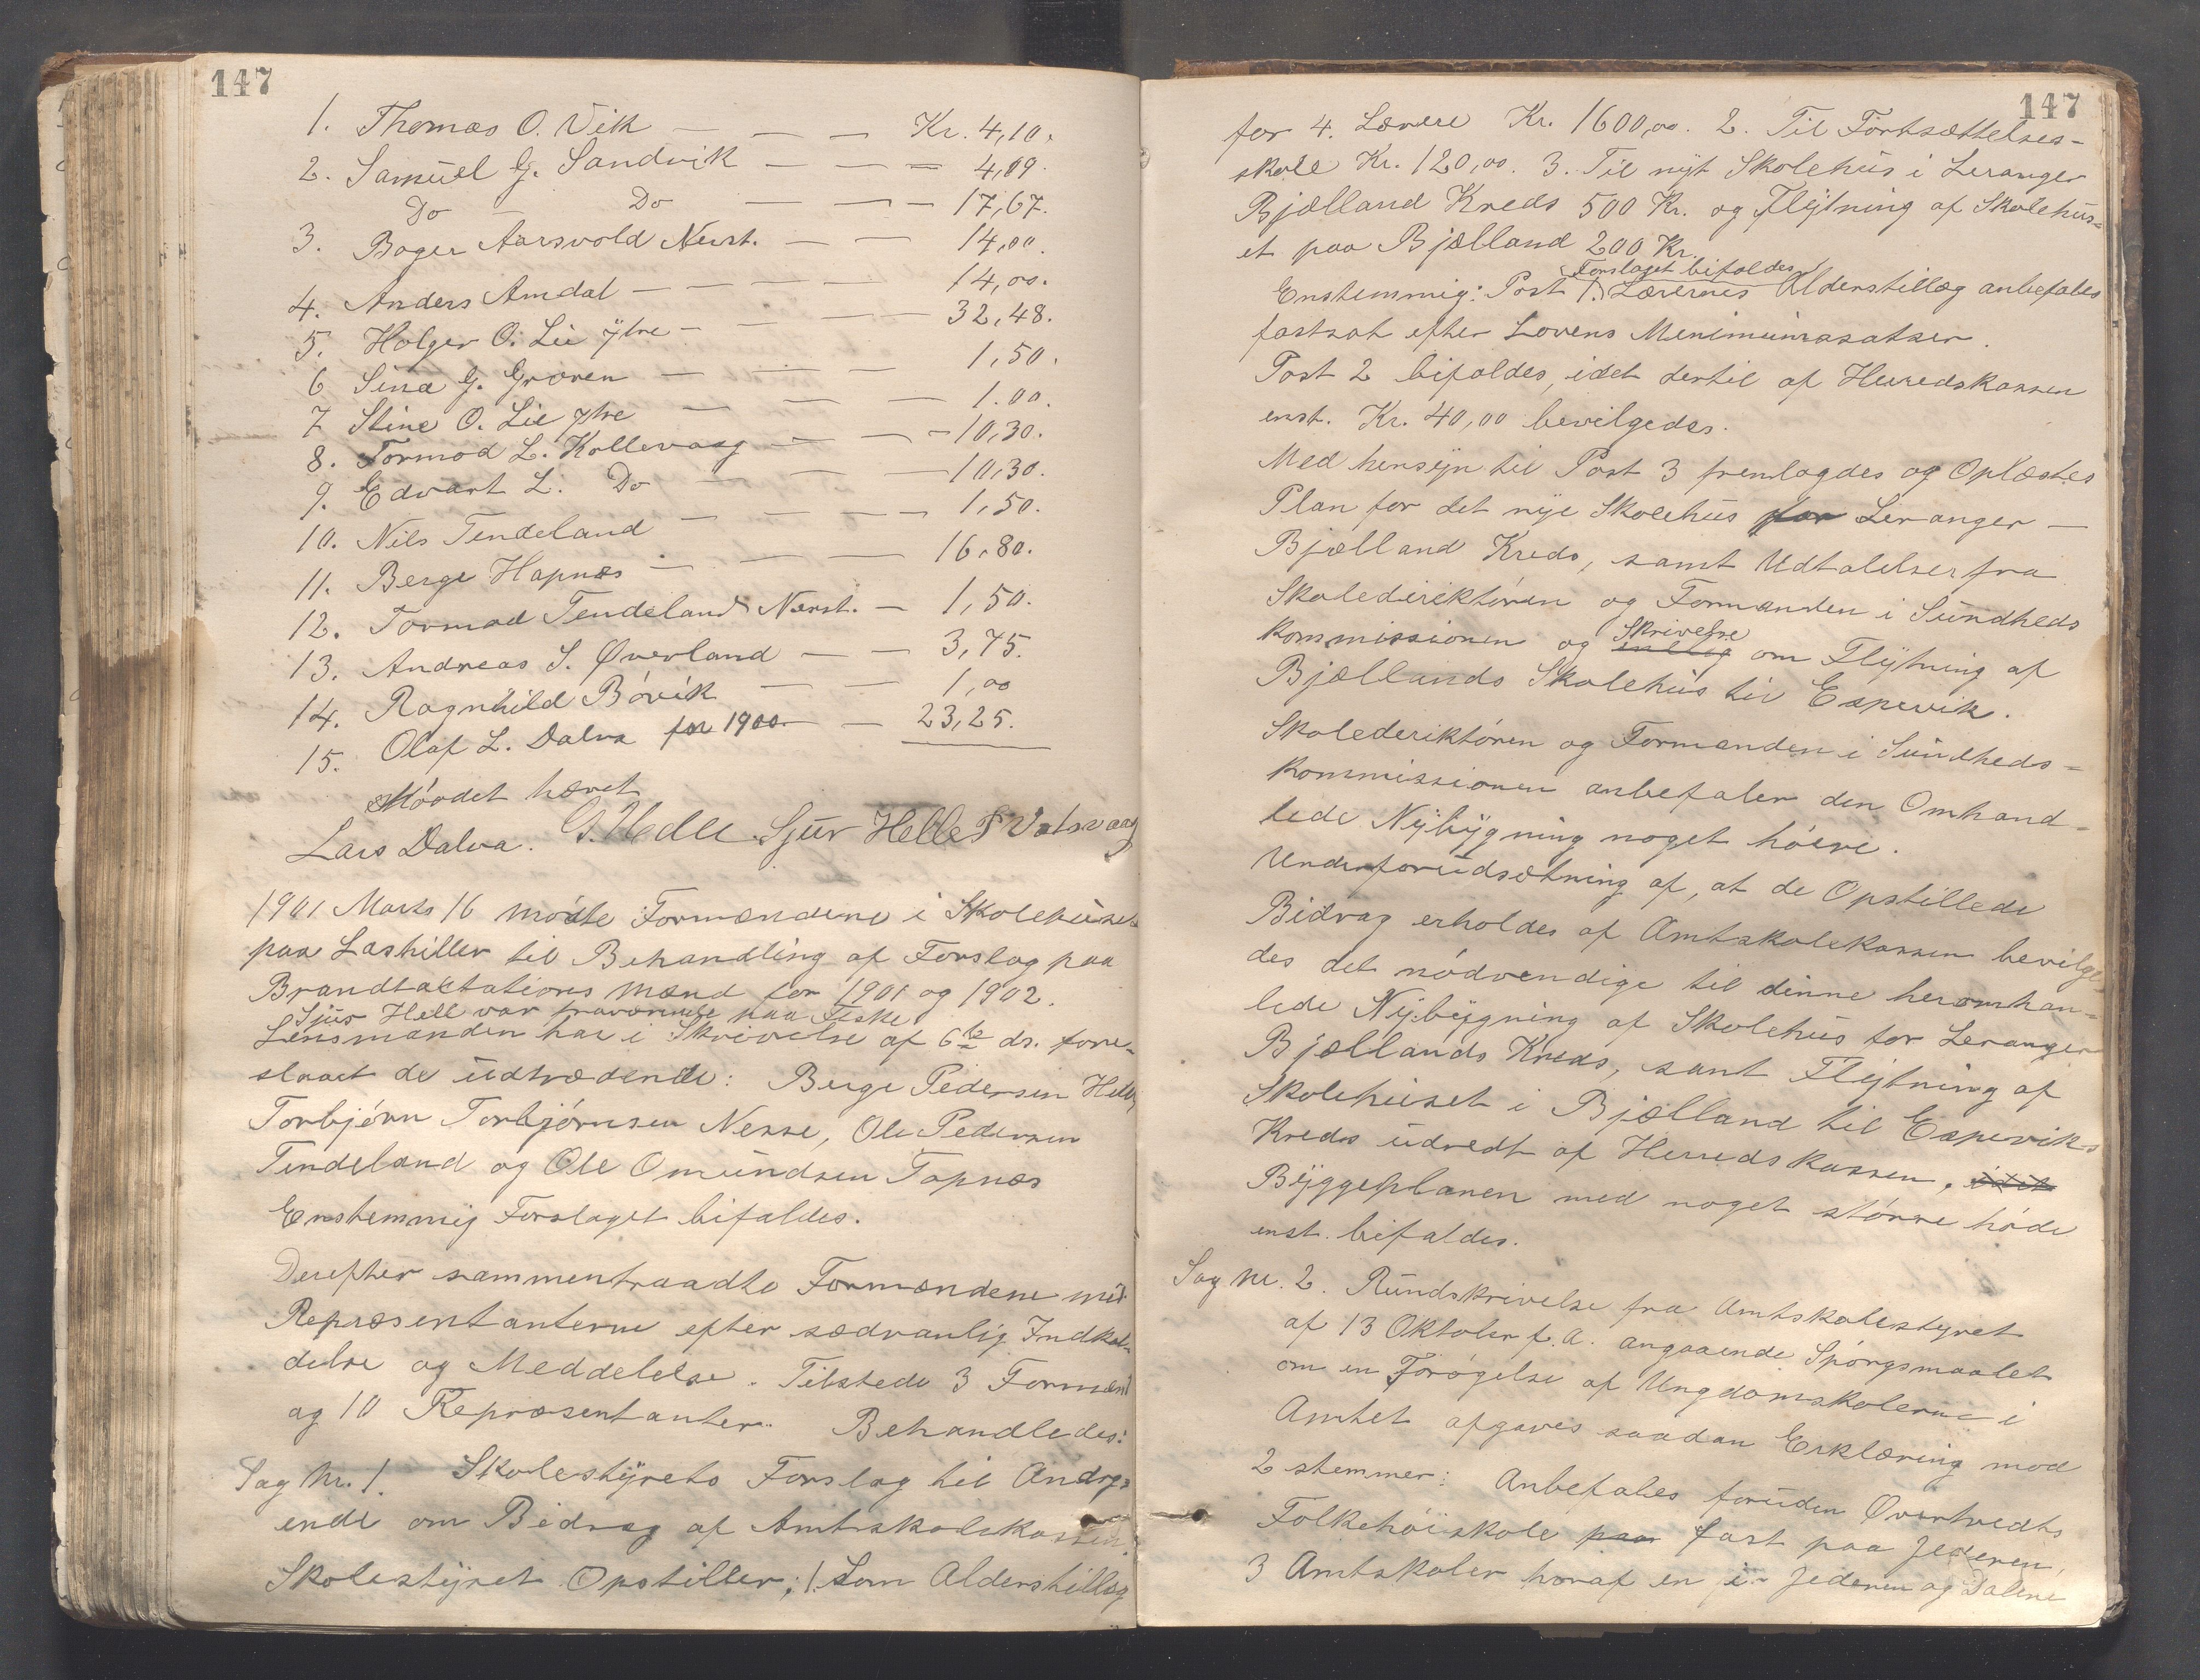 147
1. Thomas O. Vik — — — Kr. 4,10.
2. Samuel G. Sandvik — — — 4,09.
Do — Do — — — 17,67.
3. Aarsvold Nerst. — — 14,00.
4. Anders Amdal — — — — 14,00.
5. Holger O. Lie ytre — — — 32,48.
6 Sina G. Grøven — — — 1,50.
7 Stine O. Lie ytre — — — 1.00.
8. Tormod L. Kollevaag — — — 10,30.
9. Edvart L. Do — — — 10,30.
10. Nils Tendeland — — — — 1,50.
11. Berge Hapnæs — — — 16,80.
12. Tormod Tendeland Nerst. — 1,50.
13. Andreas S. Øverland — — 3,75.
14. Ragnhild Bövik — — 1,00
15. Olaf L. Dalva for 1900. — — 23,25.
Mödet hævet
Lars Dalva. G. Hedle. Sjur Helle P Vatsvaag
1901 Marts 16 mödte Formændene i Skolehuset
paa Lashiller til Behandling af Forslag paa
Brandtaktations Mænd for 1901 og 1902.
Sjur Hell var fraværende paa Fiske
Lensmanden har i Skrivelse af 6te ds. fore-
slaaet de udtrædende: Berge Pedersen Helle
Torbjörn Torbjörnsen Nesse, Ole Pedersen
Tindeland og Ole Omundsen Tapnæs
Enstemmig Forslaget bifaldes.
Derefter sammentraadte Formændene med
Repræsentanterne efter sædvanlig Indkal-
delse og Meddelelse. Tilstede 3 Formænd
og 10 Repræsentanter. Behandledes:
Sag Nr. 1. Skolestyrets Forslag til Andrag-
ende om Bidrag af Amtskolekassen.
Skolestyret Opstiller; 1. Som Alderstillæg
147
for 4. Lærere Kr. 1600,00. 2. Til Fortsættelses-
skole Kr. 120,00. 3. Til nyt Skolehus i Leranger
Bjælland Kreds 500 Kr. og Flytning af Skolehus-
et paa Bjælland 200 Kr.
Forslaget bifaldes
Enstemmig: Post 1. Lærernes Alderstillæg anbefales
fastsat efter Lovens Menimumssatser.
Post 2 bifaldes, idet dertil af Herredskassen
enst. Kr. 40,00 bevilgedes.
Med hensyn til Post 3 fremlagdes og Oplæstes
Plan for det nye Skolehus for Leranger —
Bjælland Kreds, samt Udtalelser fra
Skolederiktören og Formanden i Sundheds
Skrivelse
kommissionen og om Flytning af
Bjællands Skolehus til Espevik.
Skolederiktören og Formanden i Sundheds-
kommissionen anbefaler den Omhand-
lede Nybygning noget höiere.
Underforudsætning af, at de Opstillede
Bidrag erholdes af Amtskolekassen bevilge
des det nödvendige til denne heromhan-
lede Nybygning af Skolehus for Leranger
Bjællands Kreds, samt Flytning af
Skolehuset i Bjælland til Espeviks
Kreds udredt af Herredskassen, idet
Byggeplanen med noget större höide
enst. bifaldes.
Sag Nr. 2. Rundskrivelse fra Amtskolestyret
af 13 Oktober f.A. angaaende Spörgsmaalet
om en Forögelse af Ungdomskolerne i
Amtet afgaves saadan Erklæring mod
2 stemmer: Anbefales foruden Øvertvedts
Folkehöiskole paa fast paa Jederen,
3 Amtskoler hvoraf en i Jederen og Dalene